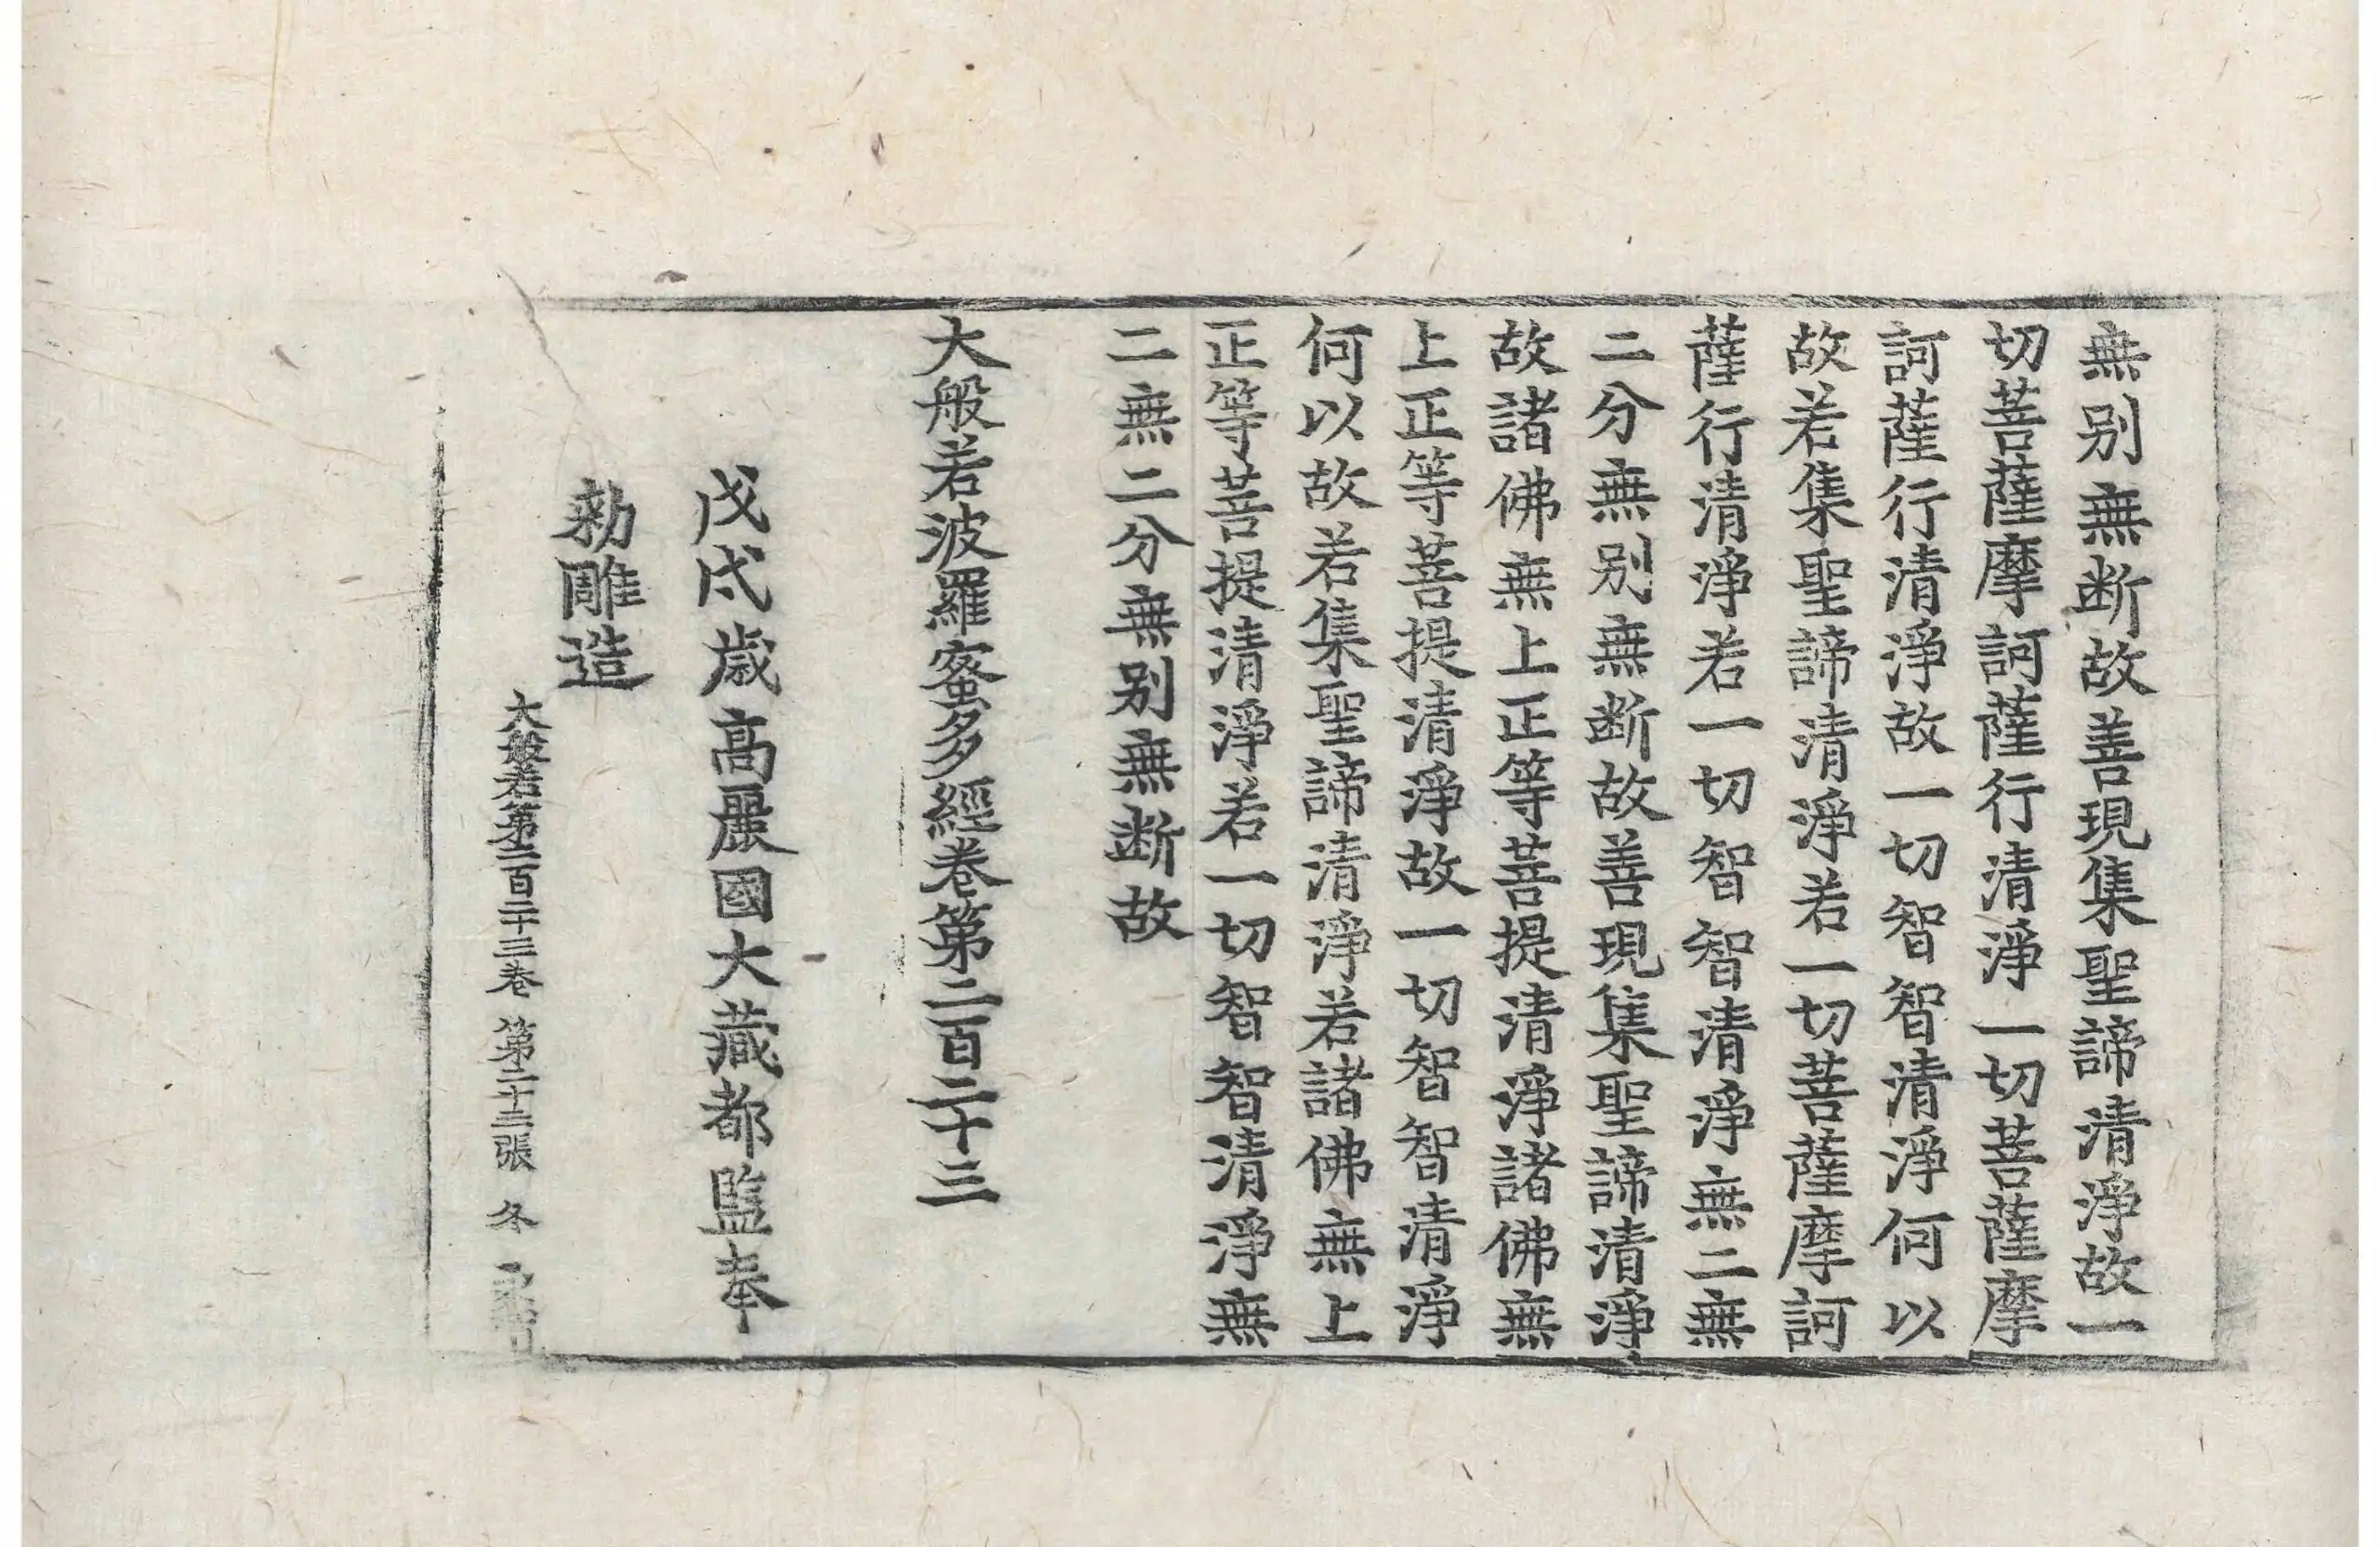 無别無断故善現集聖諦清淨故一
切菩薩摩訶薩行清淨一切菩薩摩
訶薩行清淨故一切智智清淨何以
故若集聖諦清淨若一切菩薩摩訶
薩行清淨若一切智智清淨無二無
二分無别無断故善現集聖諦清淨
故諸佛無上正等菩提清淨諸佛無
上正等菩提清淨故一切智智清淨
何以故若集聖諦清淨若諸佛無上
正等菩提清淨若一切智智清淨無
二無二分無别無断故
大般若波羅蜜多經卷第二百二十三
戊戌歳高麗國大藏都監奉
勑雕造
大般若第二百二十三卷 第二十三張 冬